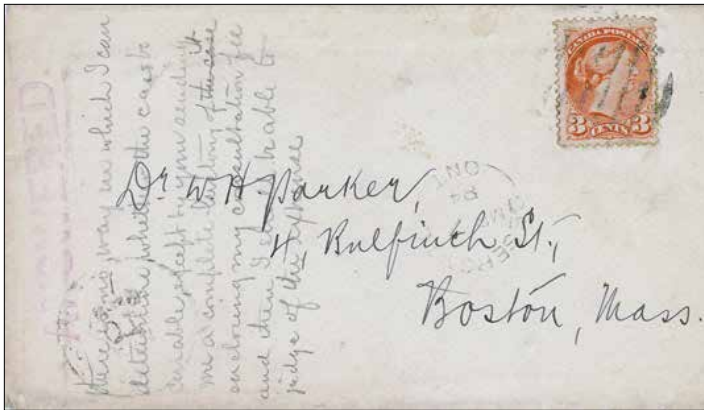 CANADA POSTAGE
3 CENTS 3
ONT
Dr. W. H. Parker,
4 Bulfinch St.,
Boston, Mass.
there is no way in which I can
determine whether the case is
curable except by you sending
me a complete history of the case it
enclosing my consultation fee
and then I will be able to
judge of the expense